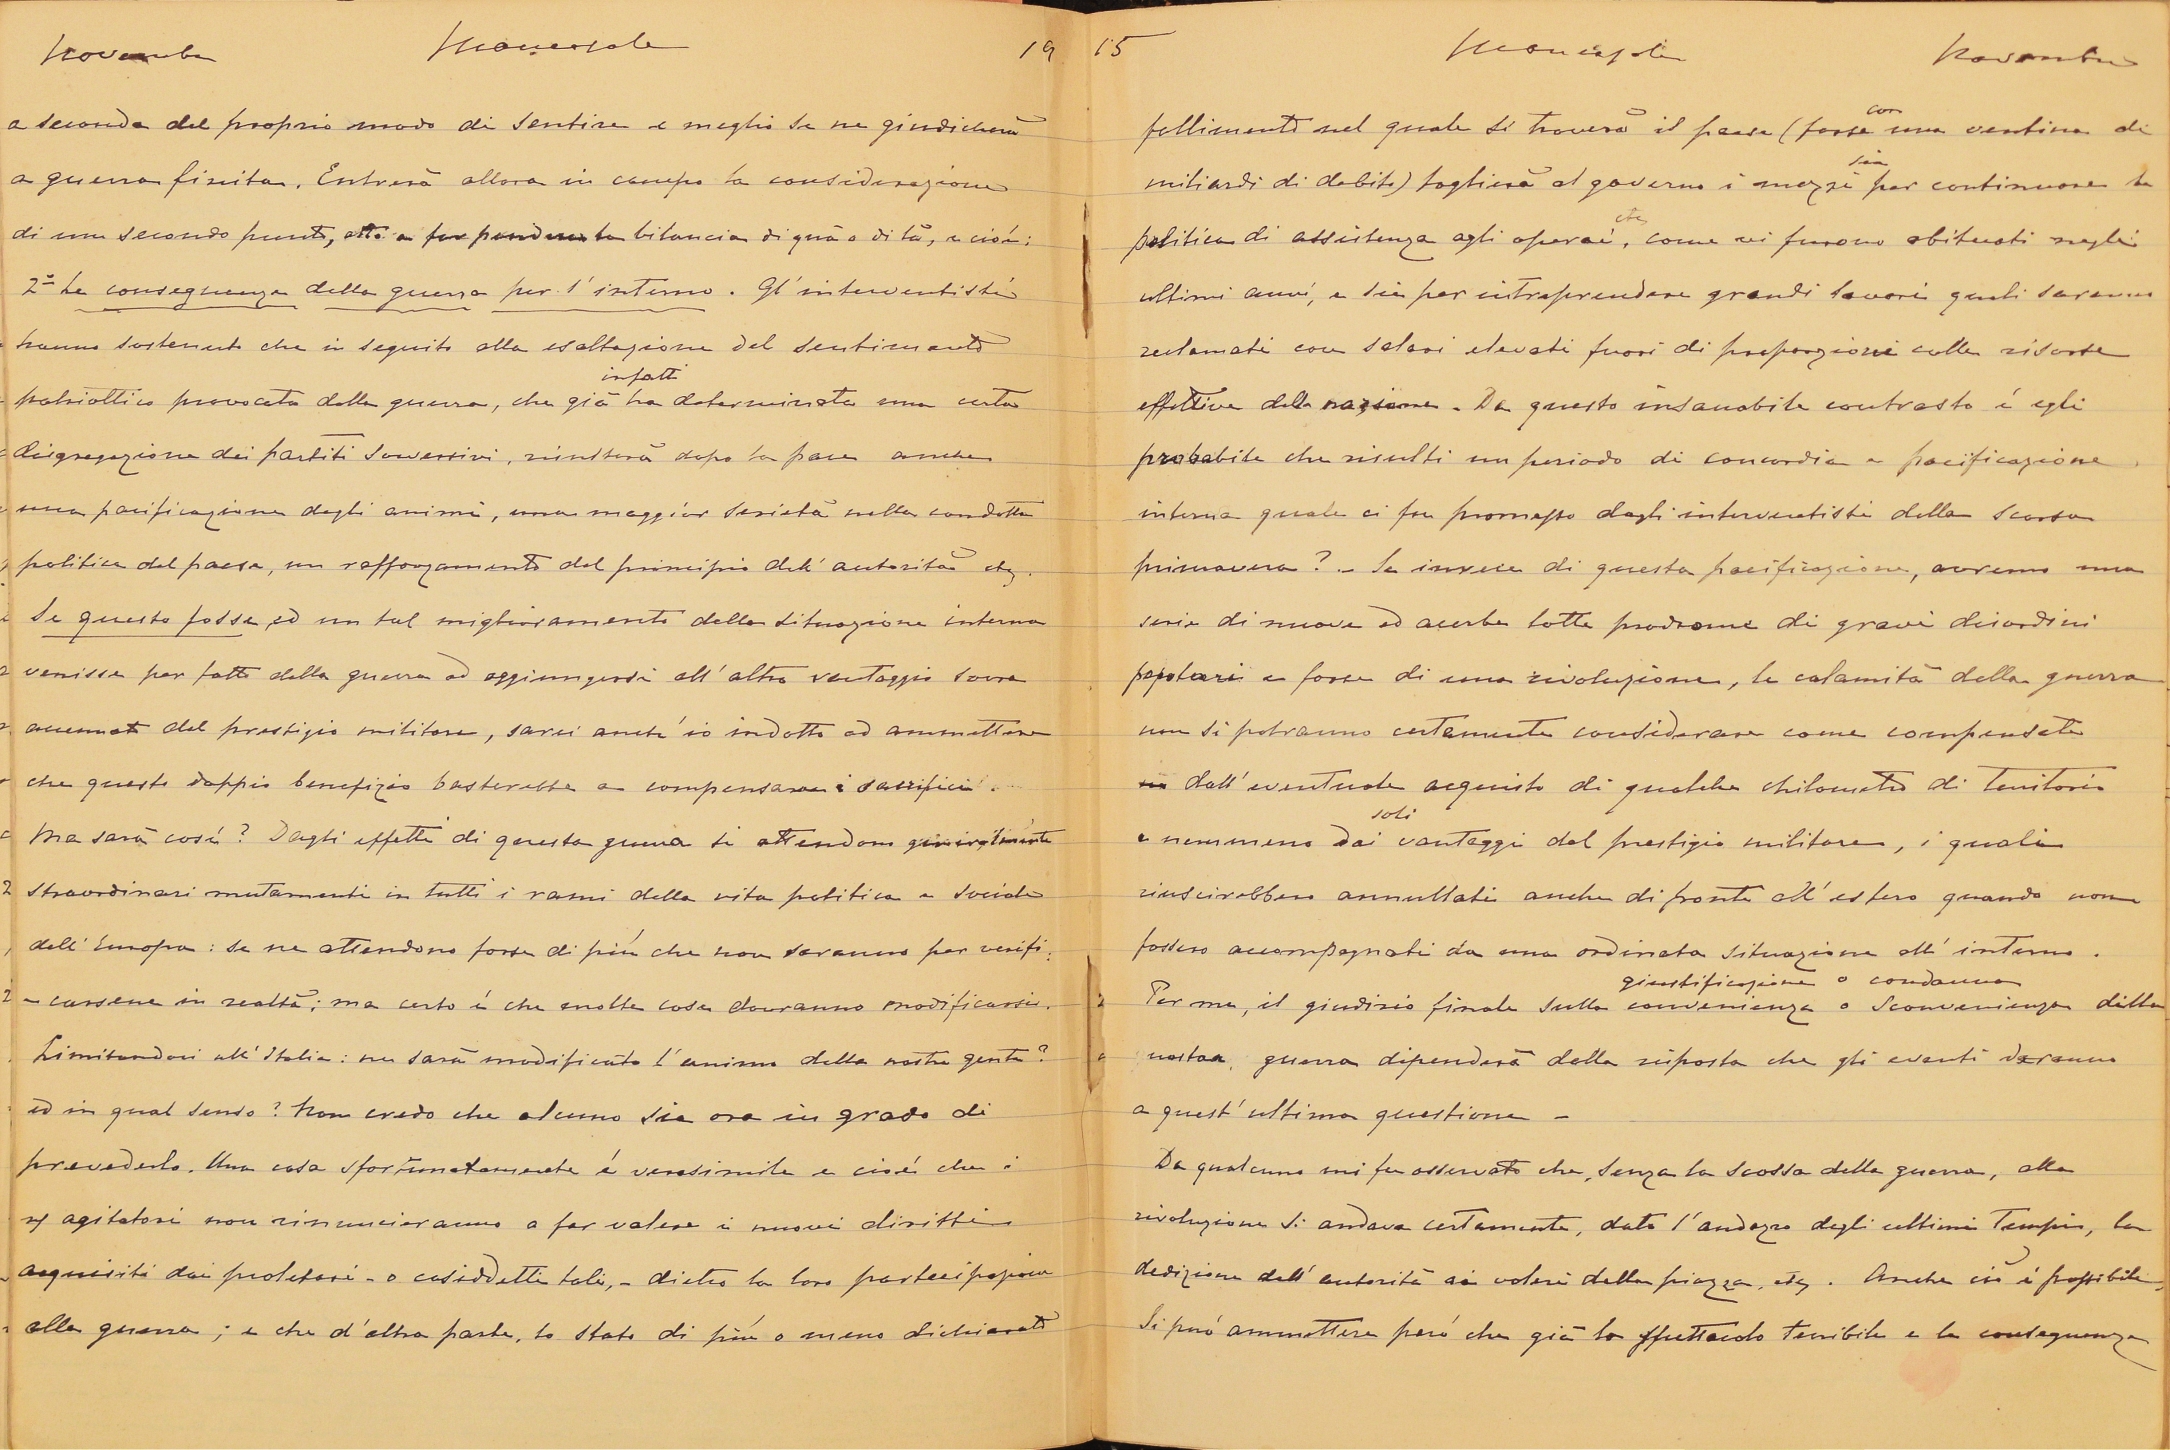 Novembre Moncasale 19
a seconda del proprio modo di sentire e meglio se ne giudicherà
a guerra finita. Entrerà allora in campo la considerazione
di un secondo punto, atto a far pendere la bilancia di quà o di là, e cioè:
2º Le conseguenze della guerra per l'interno. Gl'interventisti
hanno sostenuto che in seguito alla esaltazione del sentimento
infatti
patriottico provocata dalla guerra, che già ha determinata una certa
disgregazione dei partiti sovversivi, risulterà dopo la pace anche
una pacificazione degli animi, una maggior serietà nella condotta
politica del paese, un rafforzamento del principio dell'autorità etc.
Se questo fosse, ed un tal miglioramento della situazione interna
venisse per fatto della guerra ad aggiungersi all'altro vantaggio sovra
accennato del prestigio militare, sarei anch'io indotto ad ammettere
che questo doppio benefizio basterebbe a compensare i sacrifici.
Ma sarà così? Dagli effetti di questa guerra si attendono generalmente
straordinari mutamenti in tutti i rami della vita politica e sociale
dell'Europa: se ne attendono forse di più che non saranno per verifi-
carsene in realtà; ma certo è che molte cose dovranno modificarsi.
Limitandoci all'Italia: ne sarà modificato l'animo della nostra gente?
ed in qual senso? Non credo che alcuno sia ora in grado di
prevederlo. Una cosa sfortunatamente è verosimile e cioè che i
agitatori non rinuncieranno a far valere i nuovi diritti
acquisiti dai proletari - o cosiddetti tali, - dietro la loro partecipazione
alla guerra; e che d'altra parte, lo stato di più o meno dichiarato
15 Moncasale Novembre
con
fallimento nel quale si troverà il paese (forse una ventina di
sia
miliardi di debito) toglierà al governo i mezzi per continuare la
etc
politica di assistenza agli operai, come vi furono abituati negli
ultimi anni, e sia per intraprendere grandi lavori quali saranno
reclamati con salari elevati fuori di proporzione colle risorse
effettive della nazione. Da questo insanabile contrasto è egli
probabile che risulti un periodo di concordia e pacificazione
interna quale ci fu promesso dagli interventisti della scorsa
primavera? - Se invece di questa pacificazione, avremo una
serie di nuove ed acerbe lotte prodrome di gravi disordini
popolari e forse di una rivoluzione, le calamità della guerra
non si potranno certamente considerare come compensate
dall'eventuale acquisto di qualche chilometro di territorio
soli
e nemmeno dai vantaggi del prestigio militare, i quali
riuscirebbero annullati anche di fronte all'estero quando non
fossero accompagnati da una ordinata situazione all'interno.
giustificazione o condanna
Per me, il giudizio finale sulla convenienza o sconvenienza della
nostra guerra dipenderà dalla risposta che gli eventi daranno
a quest'ultima questione -
Da qualcuno mi fu osservato che, senza la scossa della guerra, alla
rivoluzione si andava certamente, dato l'andazzo degli ultimi tempi, la
dedizione dell'autorità ai voleri della piazza, etc. Anche ciò è possibile.
Si può ammettere però che già lo spettacolo terribile e le conseguenze